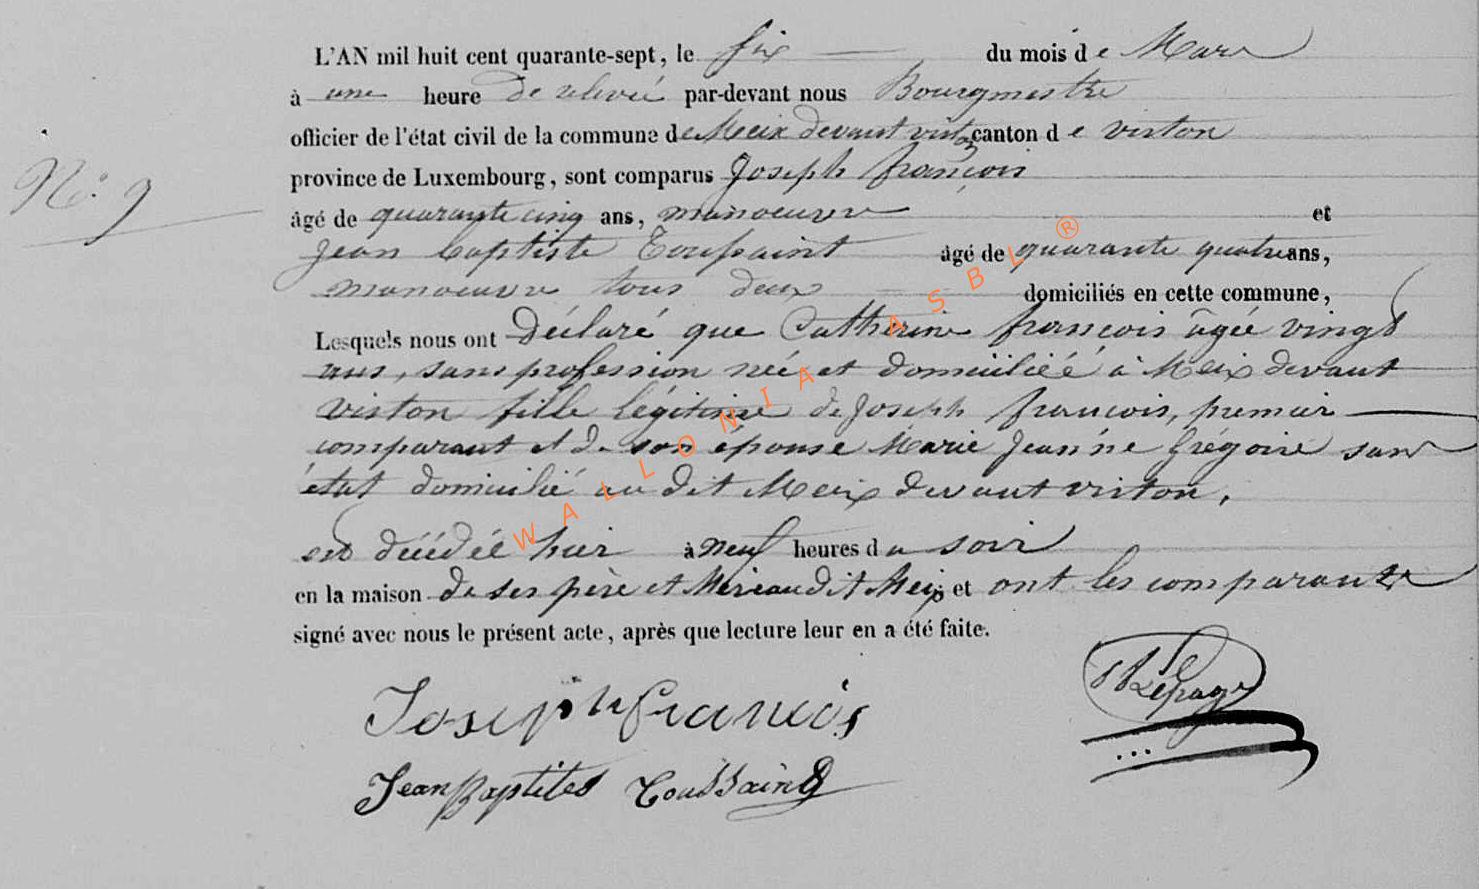 L'AN mil huit cent quarante-sept, le six du mois de Mars
à une heure de relevée par-devant nous Bourgmestre
officier de l'état civil de la commune de Meix devant virton canton de virton
province de Luxembourg, sont comparus Joseph françois
N.° 9
âgé de quarante cinq ans, manoeuvre et
Jean baptiste Toussaint âgé de quarante quatre ans,
manoeuvre tous deux domiciliés en cette commune,
Lesquels nous ont Déclaré que Catherine françois âgée vingt
ans, sans profession née et domiciliée à Meix devant
virton fille légitime de Joseph françois, premier
comparant et de son épouse Marie Jeanne Grégoire sans
état domicilié au dit Meix devant virton,
est décédée hier à neuf heures du soir
en la maison de ses père et Mère au dit Meix et ont les comparants
signé avec nous le présent acte, après que lecture leur en a été faite.
Joseph francois
Lepage
Jean Baptites Toussaint
WALLONIA ASBL ®